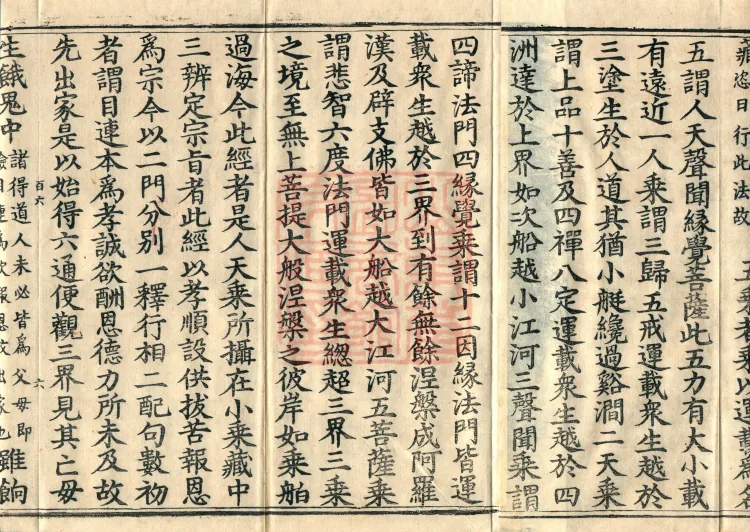 行此法故
五謂人天聲聞緣覺菩薩此五力有大小載
有遠近一人乘謂三歸五戒運載衆生越於
三塗生於人道其猶小艇纔過谿澗二天乘
謂上品十善及四禪八定運載衆生越於四
洲達於上界如次船越小江河三聲聞乘謂
四諦法門四緣覺乘謂十二因緣法門皆運
載衆生越於三界到有餘無餘涅槃成阿羅
漢及辟支佛皆如大船越大江河五菩薩乘
謂悲智六度法門運載衆生緫超三界三乘
之境至無上菩提大般涅槃之彼岸如乘舶
過海今此經者是人天乘所攝在小乘藏中
三辨定宗旨者此經以孝順設供拔苦報恩
爲宗今以二門分別一釋行相二配句數初
者謂目連本爲孝誠欲酬恩德力所未及故
先出家是以始得六通便觀三界見其亡母
百六
六
生餓鬼中
諸得道人未必皆爲父母即
目連爲欲報恩故出家也
雖餉